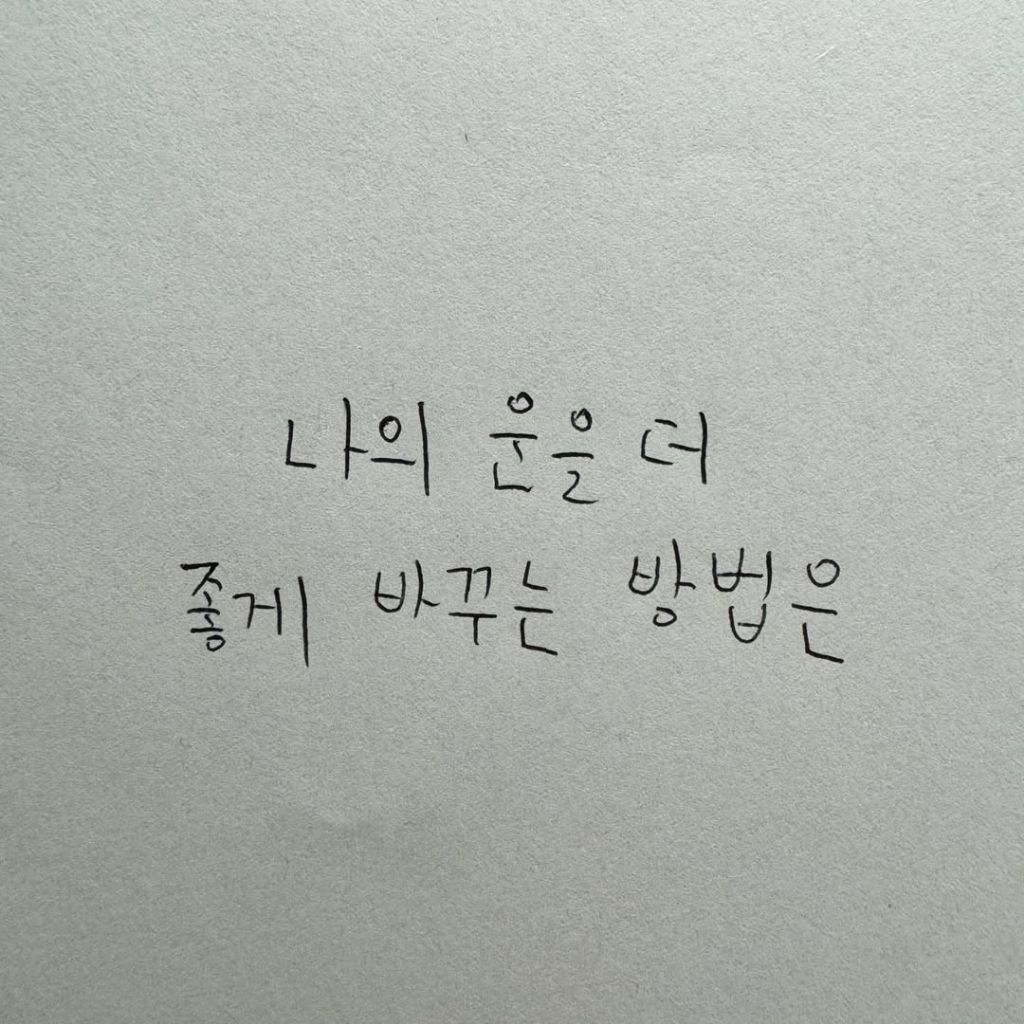 나의 운을 더
좋게 바꾸는 방법은